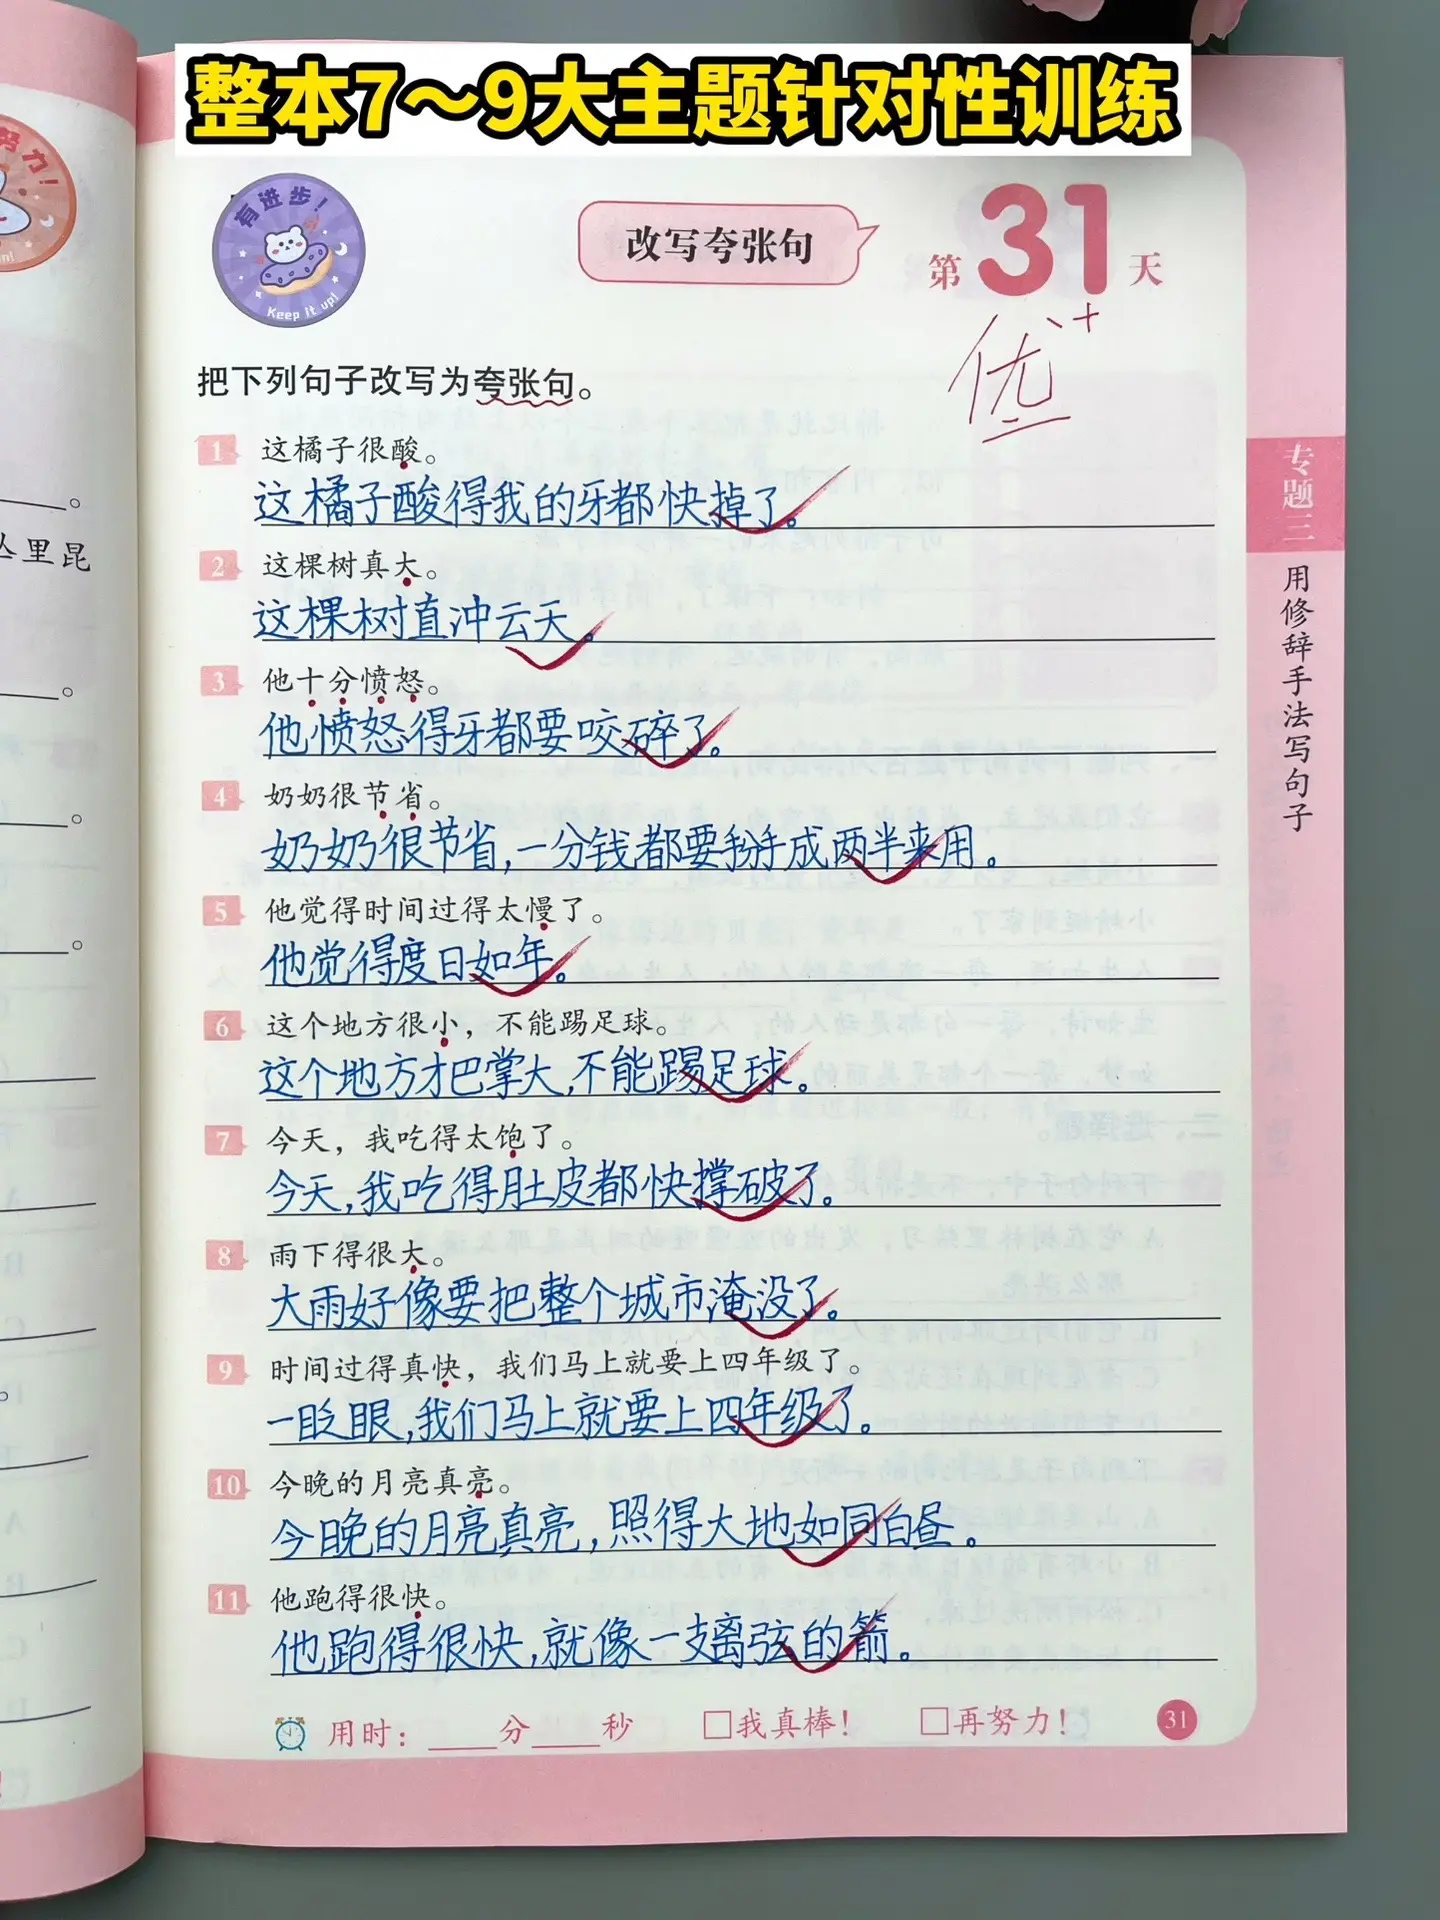 整本7～9大主题针对性训练
努力!
有进步!
Keep it up!
改写夸张句
第31天
优+
把下列句子改写为夸张句。
1 这橘子很酸。
这橘子酸得我的牙都快掉了。
2 这棵树真大。
这棵树直冲云天。
3 他十分愤怒。
他愤怒得牙都要咬碎了。
4 奶奶很节省。
奶奶很节省,一分钱都要掰成两半来用。
5 他觉得时间过得太慢了。
他觉得度日如年。
6 这个地方很小，不能踢足球。
这个地方才巴掌大,不能踢足球。
7 今天，我吃得太饱了。
今天,我吃得肚皮都快撑破了。
8 雨下得很大。
大雨好像要把整个城市淹没了。
9 时间过得真快，我们马上就要上四年级了。
一眨眼,我们马上就要上四年级了。
10 今晚的月亮真亮。
今晚的月亮真亮,照得大地如同白昼。
11 他跑得很快。
他跑得很快,就像一支离弦的箭。
用时：____分____秒 □我真棒! □再努力!
31
专题三
用修辞手法写句子
丛里昆